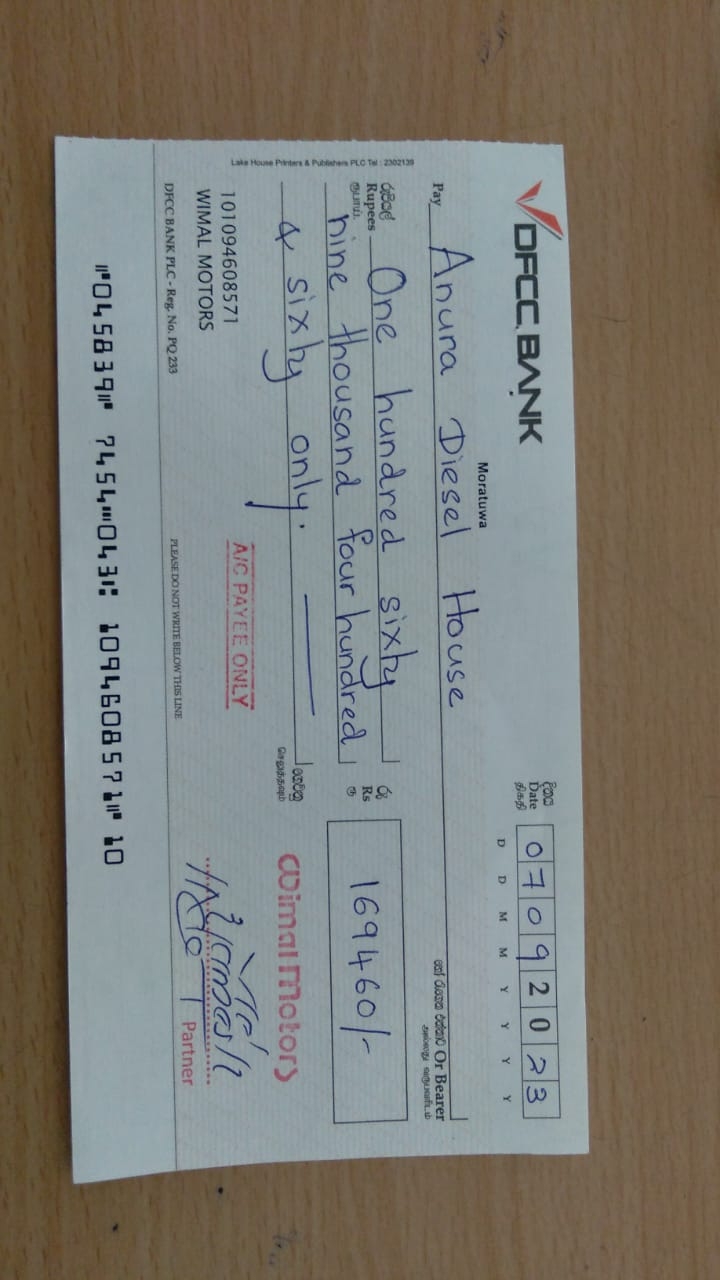 DFCC BANK
Moratuwa
දිනය
Date
திகதி
07092023
D D M M Y Y Y Y
Pay Anura Diesel House
හෝ රැගෙන එන්නාට Or Bearer
அல்லது வருபவரிடம்
රුපියල්
Rupees
ரூபாய்
One hundred sixty
nine thousand four hundred
& sixty only.
ගෙවනු
செலுத்தவும்
රු
Rs
ரூ
169460/-
A/C PAYEE ONLY
Wimal Motors
Partner
101094608571
WIMAL MOTORS
DFCC BANK PLC - Reg. No. PQ 233
PLEASE DO NOT WRITE BELOW THIS LINE
⑈045839⑈ 7454⑉043⑆ 109460857⑈ 10
Lake House Printers & Publishers PLC Tel : 2302139